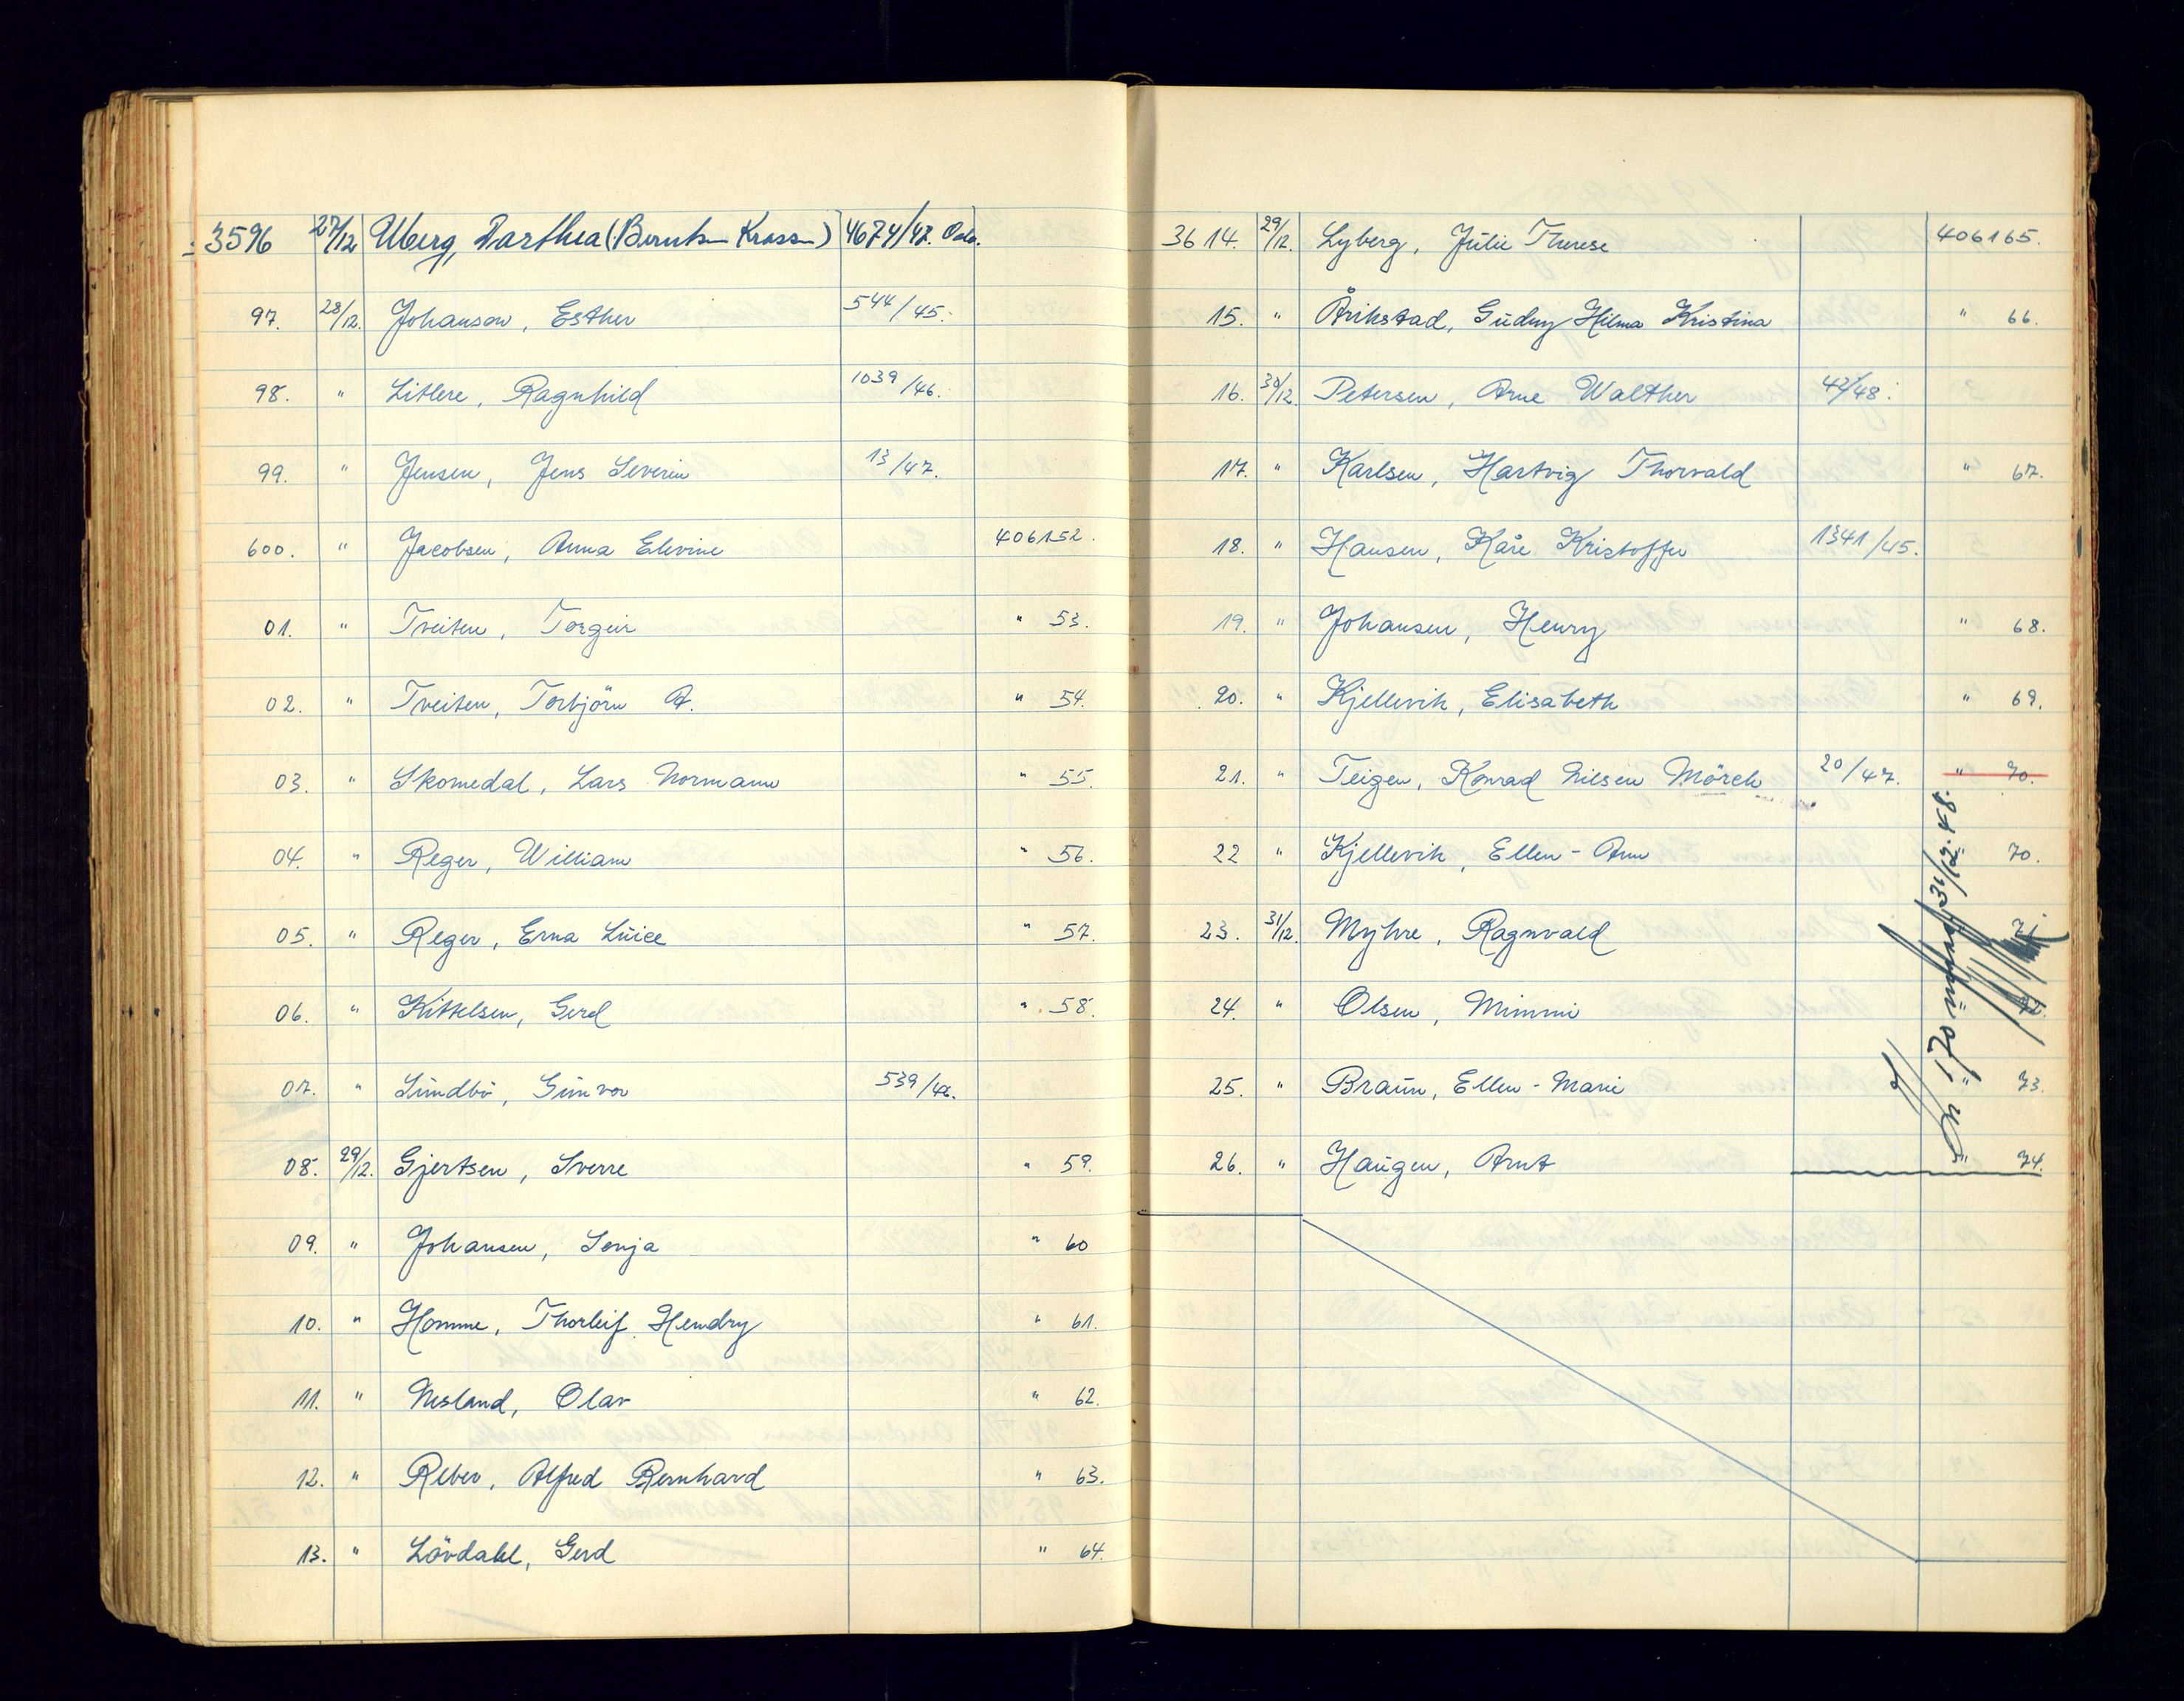 3596 27/12 Uberg, Darthea (Berntsen Krossen) 4674/47. Oslo.
97. 28/12. Johanson, Esther 544/45.
98. " Litlere, Ragnhild 1039/46.
99. " Jensen, Jens Severin 13/47.
600. " Jacobsen, Anna Elevine 406152.
01. " Tveiten, Torgeir " 53.
02. " Tveiten, Torbjörn A. " 54.
03. " Skomedal, Lars Normann " 55.
04. " Reger, William " 56.
05. " Reger, Erna Luice " 57.
06. " Kittelsen, Gerd " 58.
07. " Lundbö, Gunvor 539/46.
08. 29/12. Gjertsen, Sverre " 59.
09. " Johansen, Sonja " 60
10. " Homme, Thorleif Hendry " 61.
11. " Nesland, Olav " 62.
12. " Reber, Alfred Bernhard " 63.
13. " Lövdahl, Gerd " 64.
3614. 29/12. Lyberg, Julie Therese 406165.
15. " Årikstad, Gudny Hilma Kristina " 66.
16. 30/12. Petersen, Arne Walther 42/48.
17. " Karlsen, Hartvig Thorvald " 67.
18. " Hansen, Kåre Kristoffer 1341/45.
19. " Johansen, Henry " 68.
20. " Kjellevik, Elisabeth " 69.
21. " Teigen, Konrad Nilsen Mörch 20/47. " 70.
22 " Kjellevik, Ellen-Ann 70.
23. 31/12. Myhre, Ragnvald 71
24. " Olsen, Mimmi
25. " Braun, Ellen-Marie " 73.
26. " Haugen, Arnt " 74.
31/12.48.